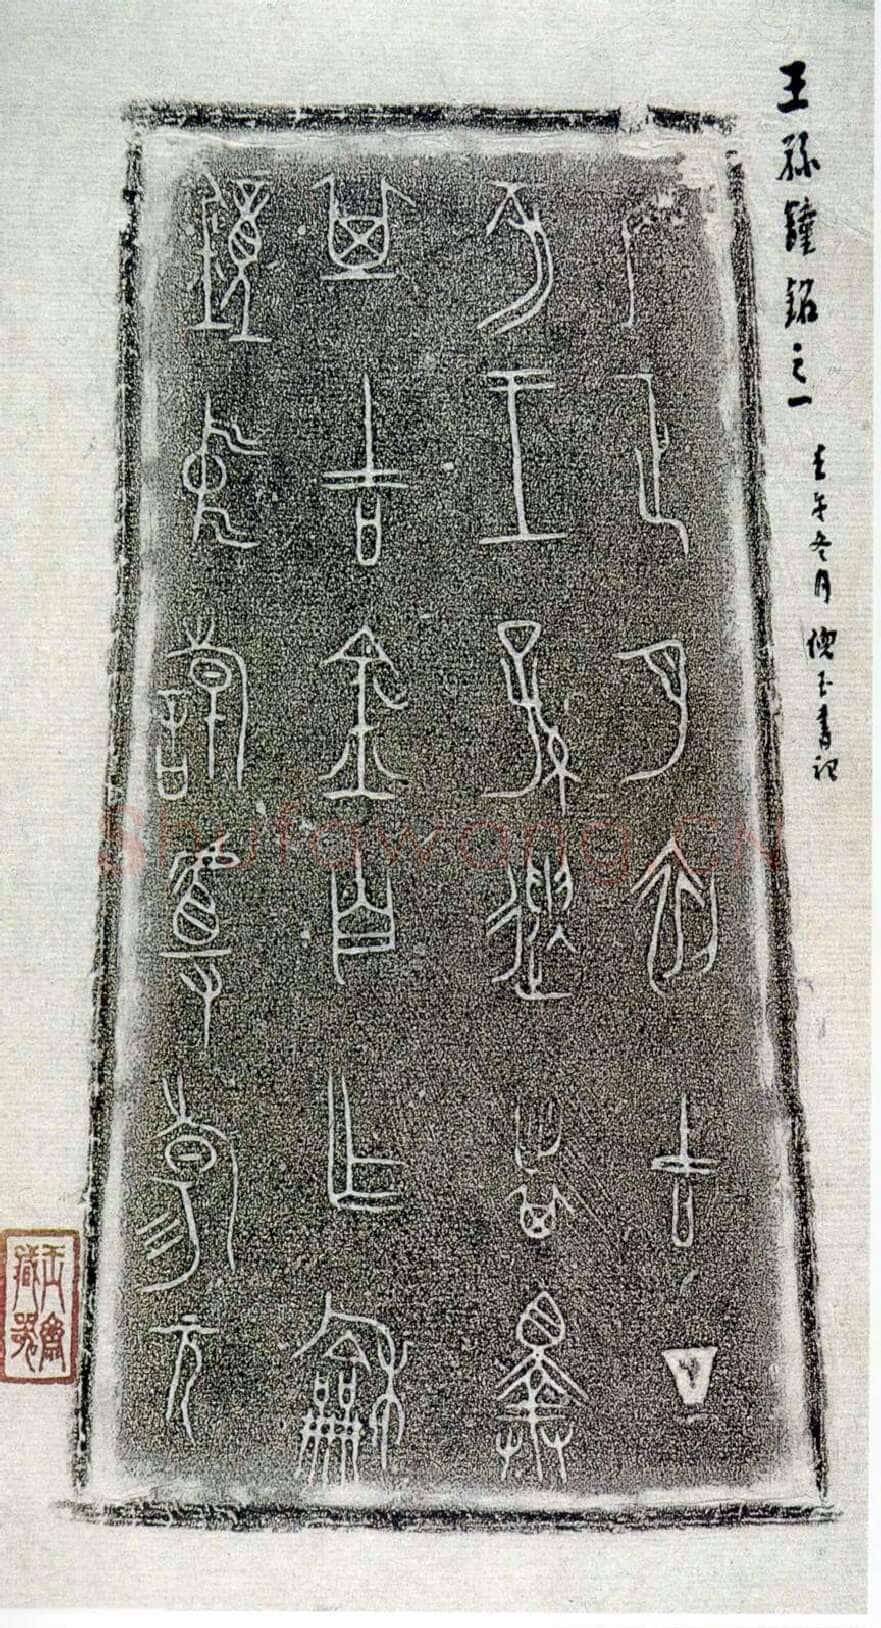 王孫鐘銘之一
壬午冬月 倪玉書記
隹正月初吉丁
亥王孫遺者擇
其吉金自乍龢
鐘中虘昜元
Shufawang.CN